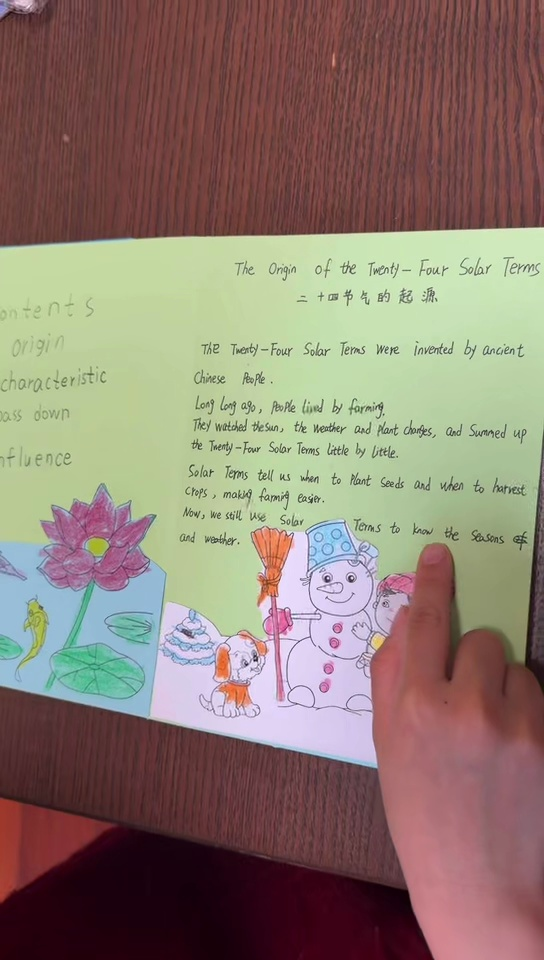 ontents
origin
characteristic
pass down
nfluence
The Origin of the Twenty-Four Solar Terms
二十四节气的起源
The Twenty-Four Solar Terms were invented by ancient
Chinese People.
Long long ago, People lived by farming.
They watched the sun, the weather and plant changes, and Summed up
the Twenty-Four Solar Terms little by little.
Solar Terms tell us when to Plant Seeds and when to harvest
crops, making farming easier.
Now, we still use Solar Terms to know the seasons
and weather.